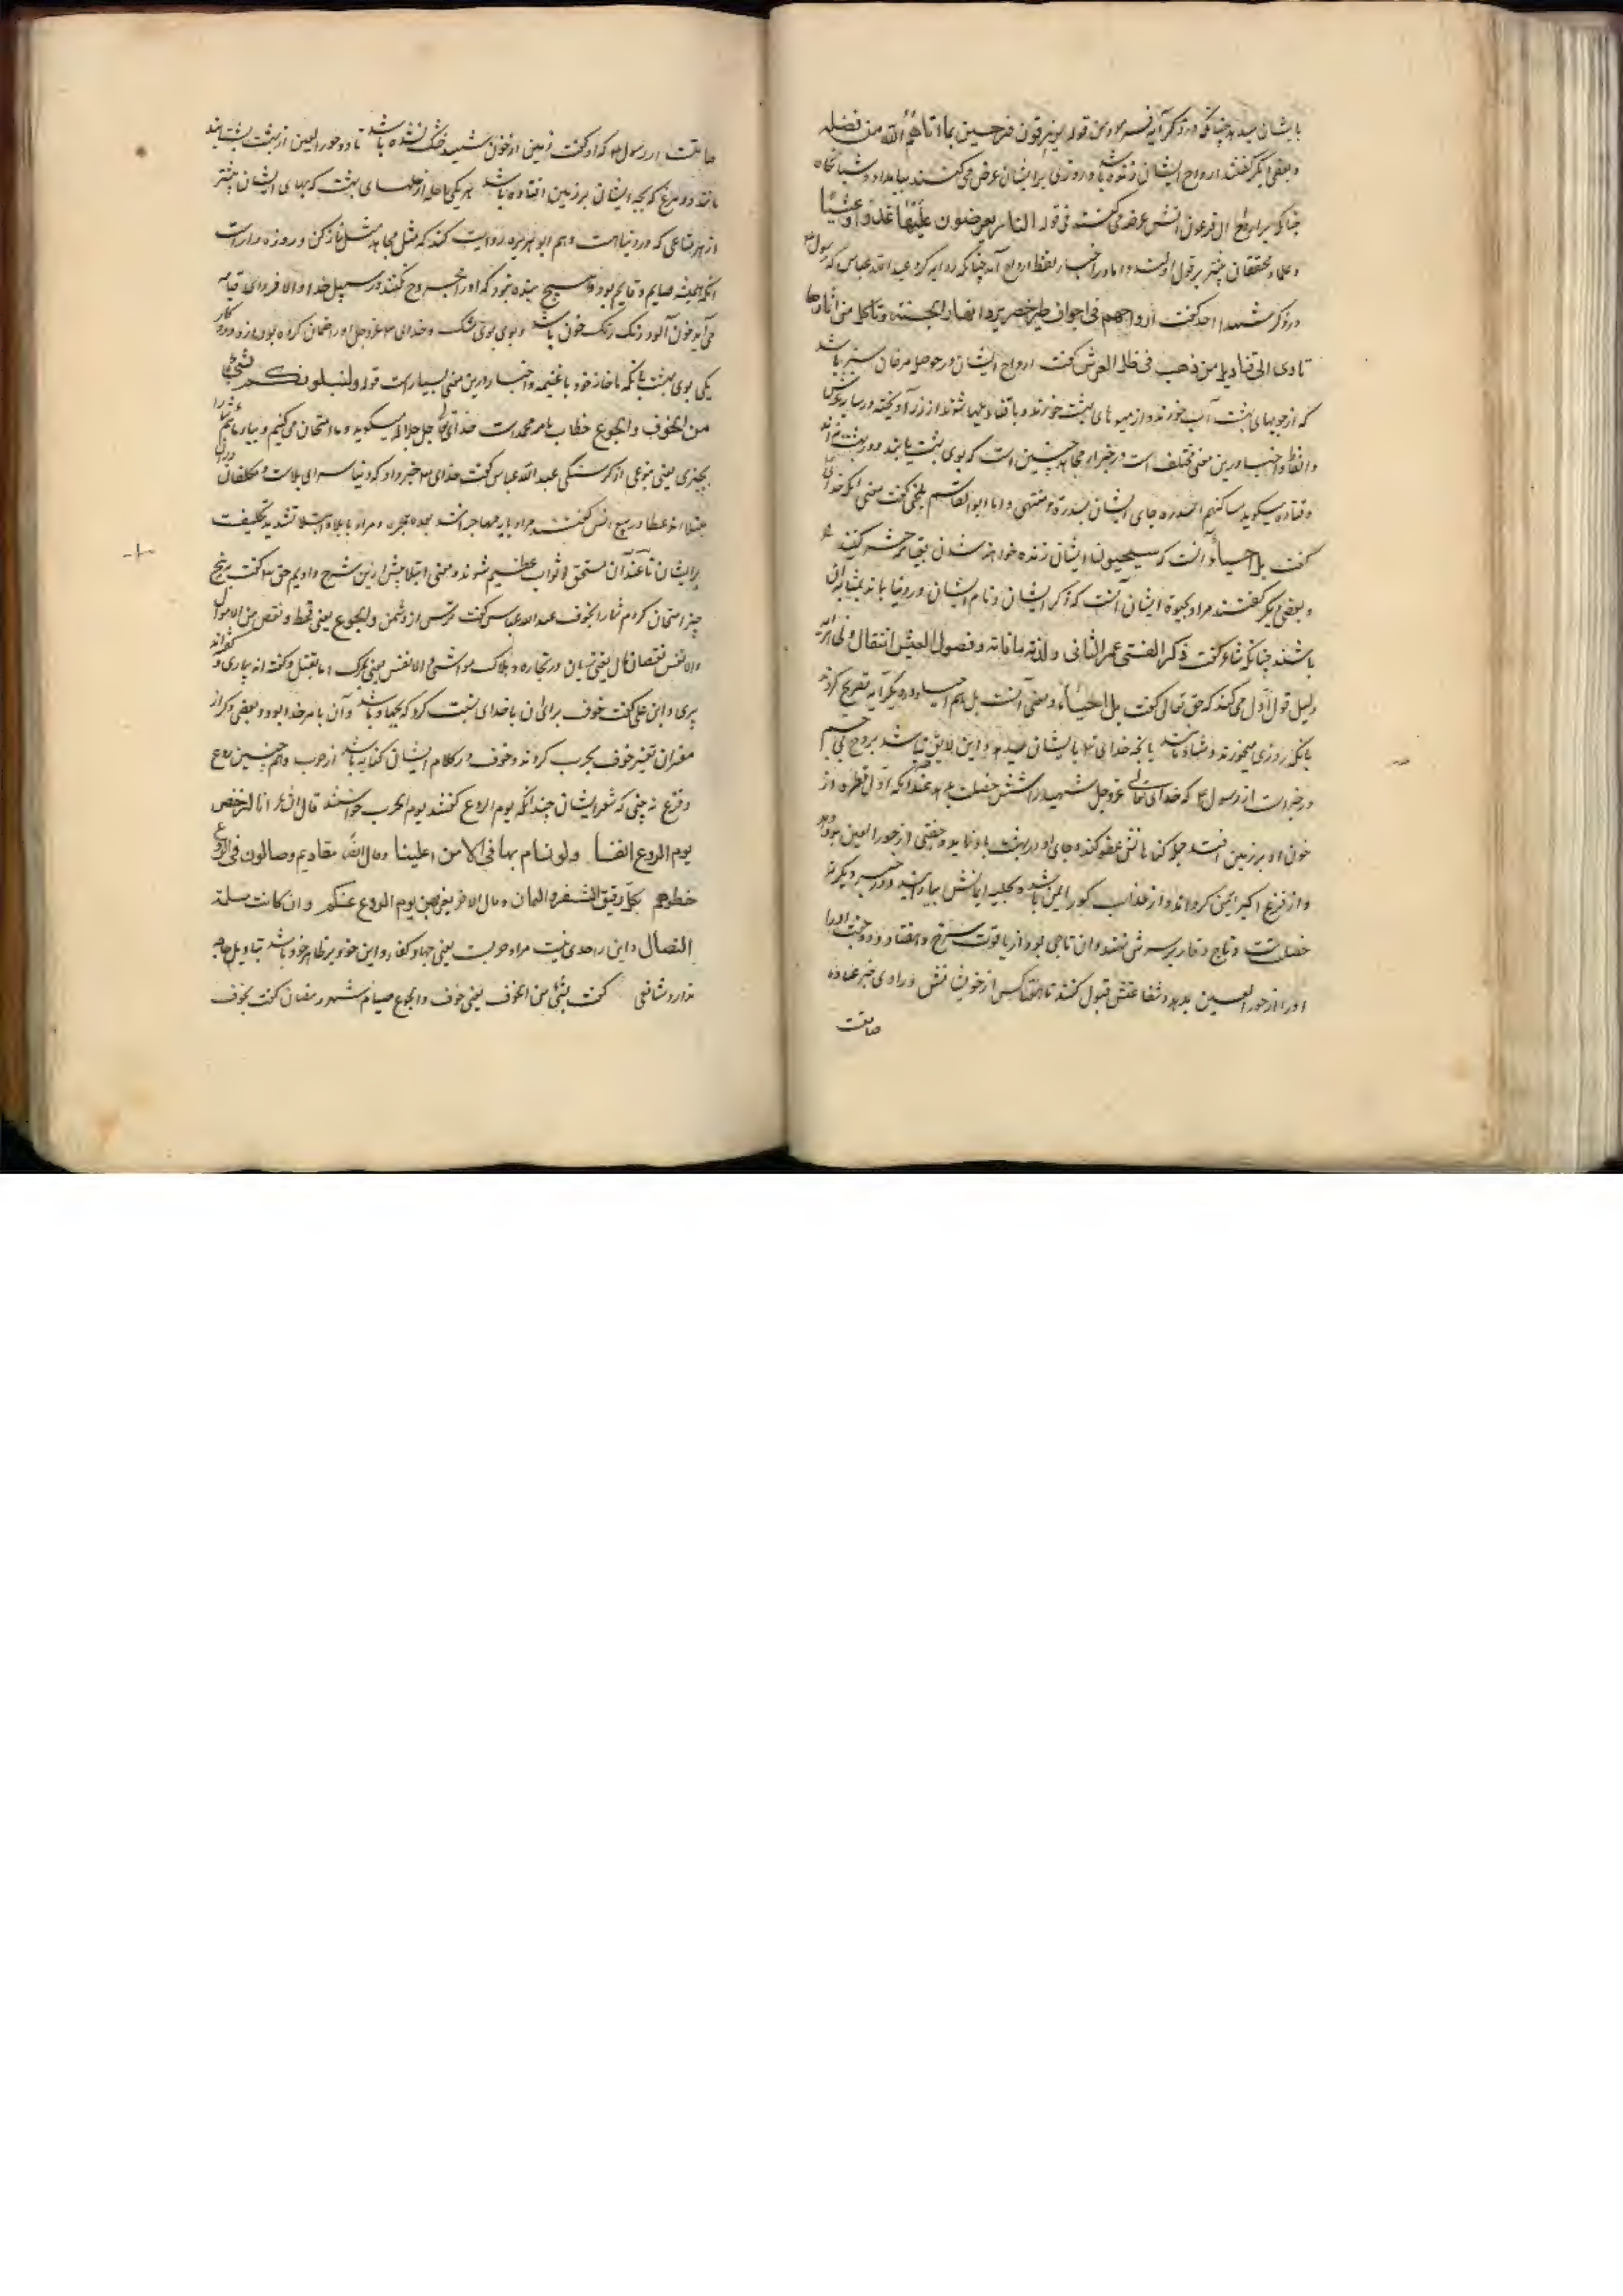 بایشان میدهد چنانکه در دیگر آیه فرمود من قوله یرزقون فرحین بما اتاهم الله من فضله
و بعضی دیگر گفتند ارواح ایشان زنده باشد و روزی بر ایشان عرض می کنند بامداد و شبانگاه
چنانکه بر ارواح ال فرعون اتش عرضه می کنند فی قوله النار یعرضون علیها غدوا وعشیا
و علماء محققان بیشتر بر قول اولند و اما در اخبار لفظ ارواح آمد چنانکه روایه کرد عبد الله عباس که رسول
در ذکر شهداء احد گفت ارواحهم فی اجواف طیر خضر ترد انهار الجنة وتاکل من اثمارها
تاوی الی قنادیل من ذهب فی ظل العرش گفت ارواح ایشان در حوصل مرغان سبز باشد
که از جویهای بهشت آب خورند و از میوه های بهشت خورند و با قنادیلها شوند از زر آویخته در سایه عرش
و الفاظ و اخبار درین معنی مختلف است و در خبر از مجاهد چنین است که بوی بهشت یابند و در بهشت نه اند
و قتاده میگوید مساکنهم السدره جای ایشان سدرة منتهی و اما ابو القاسم بلخی گفت معنی آنکه خدای
گفت بل احیاء آنست که سیحیون ایشان زنده خواهند شدن بقیامه حشر کنند
و بعضی دیگر گفتند مراد بحیوة ایشان آنست که ذکر ایشان و نام ایشان در دنیا باند بمثابه آن
باشند چنانکه شاعر گفت ذکر الفتی عمر الثانی ولذته ما فاته وفصول العیش اشغال
دلیل قول اول می کند که حق تعالی گفت بل احیاء و معنی آنست بل هم احیاء و در دیگر آیه تصریح کرد
بانکه روزی میخورند و شاد باشند بانچه خدای تع بایشان میدهد و این لایق نباشد بروح بی جسم
و در خبر است از رسول که خدای تعالی عزوجل شهید را شش خصلت بدهد عند آنکه اول قطره از
خون او بر زمین افتد جمله گناهانش عفو کند و جای او در بهشت باو نماید و جفتی از حور العین بدو دهد
و از فزع اکبر ایمن گرداند و از عذاب گور ایمن باشد و بحلیه ایمانش بیارایند و در خبر دیگر نه
خصلت است و تاج وقار بر سرش نهند و ان تاجی بود از یاقوت سرخ و هفتاد و دو جفت او را
او را از حور العین بدهد و شفاعتش قبول کنند تا هفتاد کس از خویشانش و راوی خبر عباده
صامت
صامت از رسول که او گفت زمین از خون شهید خشک نشده باشد تا دو حور العین از بهشت بشتابند
مانند دو مرغ که بچه ایشان بر زمین افتاده باشد هر یکی با حله از حلهای بهشت که بهای ایشان بیشتر
از هر متاعی که در دنیا است و هم ابو هریره روایت کند که مثل مجاهد مثل نماز کن و روزه دار است
آنکه همیشه صایم و قایم بود و هیچ بنده نبود که او را مجروح کنند در سبیل خدا و الا فردای قیامه
می آید خون آلود رنگ رنگ خون باشد و بوی بوی مشک
یکی بوی بهشت یا آنکه با خانه خود با غنیمه و اخبار درین معنی بسیار است قوله ولنبلونکم بشیء
من الخوف والجوع خطاب با امه محمد است خدای تعالی جل جلاله میگوید و ما امتحان می کنیم و بیازماییم شما را
بچیزی یعنی بنوعی از گرسنگی عبد الله عباس گفت خدای خبر داد که دنیا سرای بلاست و مکلفان
مبتلاء و عطا و ربیع انس گفتند مراد بایه مهاجرانند بعد هجره و مراد ببلاء ابتلا تشدید تکلیفست
بر ایشان تا عند آن مستحق ثواب عظیم شوند و معنی ابتلا پیش ازین شرح دادیم حق گفت به پنج
چیز امتحان کردم شما را الخوف عبد الله عباس گفت ترس از دشمن والجوع یعنی قحط ونقص من الاموال
والانفس نقصان مال یعنی زیان در تجاره و هلاک مواشی والانفس یعنی مرگ و اما بقتل و گفته اند بیماری و
پیری و ابن علی گفت خوف برای آن با خدای نسبت کرد که بجهاد باشد و آن بامر خدا بود و بعضی دگر از
مفسران تفسیر خوف بحرب کردند و خوف در کلام ایشان کنایه باشد از حرب و همچنین روع
و فزع نه بینی که شعر ایشان چندانکه یوم الروع گفتند یوم الحرب خواستند قال الشاعر انا لنرخص
یوم الروع انفسنا ولو نسام بها فی الامن اغلینا وقال ایضا مقادیم وصالون فی الروع
خطوهم بکل رقیق الشفرتین یمان
النصال و این را حدی نیست مراد حربست یعنی جهاد کفار و این خوف بر ظاهر خود باشد بتاویل حاجه
ندارد شافعی گفت بشیء من الخوف یعنی خوف والجوع صیام شهر رمضان گفت بخوف